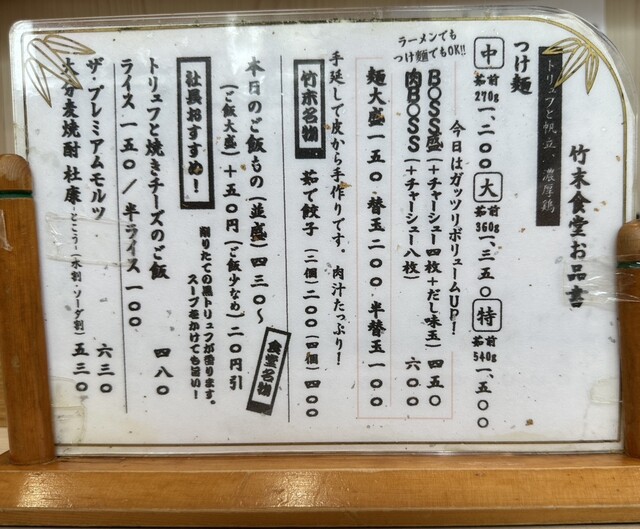 竹末食堂お品書
トリュフと帆立、濃厚鶏
つけ麺
中 茹前270g 一、二〇〇 大 茹前360g 一、三五〇 特 茹前540g 一、五〇〇
ラーメンでも
つけ麺でもOK!!
今日はガッツリボリュームUP！
BOSS盛（＋チャーシュー四枚＋だし味玉）四五〇
肉BOSS（＋チャーシュー八枚）六〇〇
麺大盛一五〇 替玉二〇〇 半替玉一〇〇
手延しで皮から手作りです。肉汁たっぷり！
竹末名物 茹で餃子（二個）二〇〇（四個）四〇〇
食堂名物
本日のご飯もの（並盛）四三〇〜
（ご飯大盛）＋五〇円（ご飯少なめ）二〇円引
社長おすすめ！
削りたての黒トリュフが香ります。
スープをかけても旨い！
トリュフと焼きチーズのご飯 四八〇
ライス一五〇／半ライス一〇〇
ザ・プレミアムモルツ 六三〇
大分麦焼酎 杜康・とこう-（水割・ソーダ割）五三〇